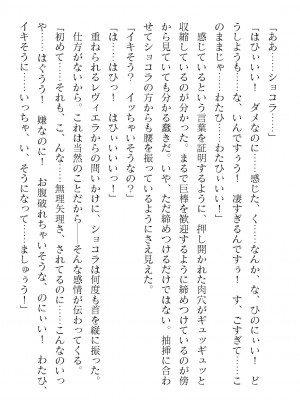 「ああ……ショコラ！」
「はひぃいい！　ダメなのに……感じた、く……なんか、な、ひのにぃい！　ど
うしようも……な、いんですぅ！　凄すぎるんですぅ！　す、ごすぎて……こ
のままじゃ、わたひ……わたひぃいい！」
　感じているという言葉を証明するように、押し開かれた肉穴がギュッギュッと
収縮しているのが分かった。まるで巨棒を歓迎するように締めつけているのが傍
から見ていても分かる蠢きだ。いや、ただ締めつけるだけではない。抽挿に合わ
せてショコラの方からも腰を振っているようにさえ見えた。
「イキそう？　イッちゃいそうなの？」
「は……はひっ！　はひぃいいいっ！」
　重ねられるレヴィエラからの問いかけに、ショコラは何度も首を縦に振った。
仕方がない。これは当然のことだから――そんな感情が伝わってくる。
「初めて……それも、こ、んな……無理矢理、されてるのに……こんなのいっ
や……はぐうう！　嫌なのに！　お腹破れちゃいそうな、のにぃい！　わたひ、
イキそうに……いっちゃ、い、そうになって……ましゅぅう！」